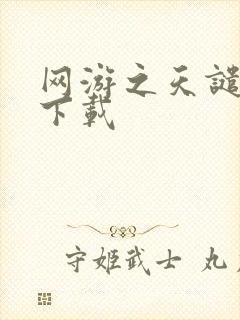 网游之天谴
下载
守姬武士 丸